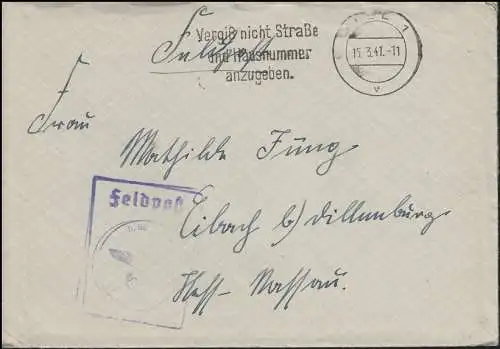 Vergiß nicht Straße
und Hausnummer
anzugeben.
1
15.3.41.-11
v
Feldpost
Frau
Mathilde Jung
Feldpost
Eibach b/ Dillenburg
Hess-Nassau.